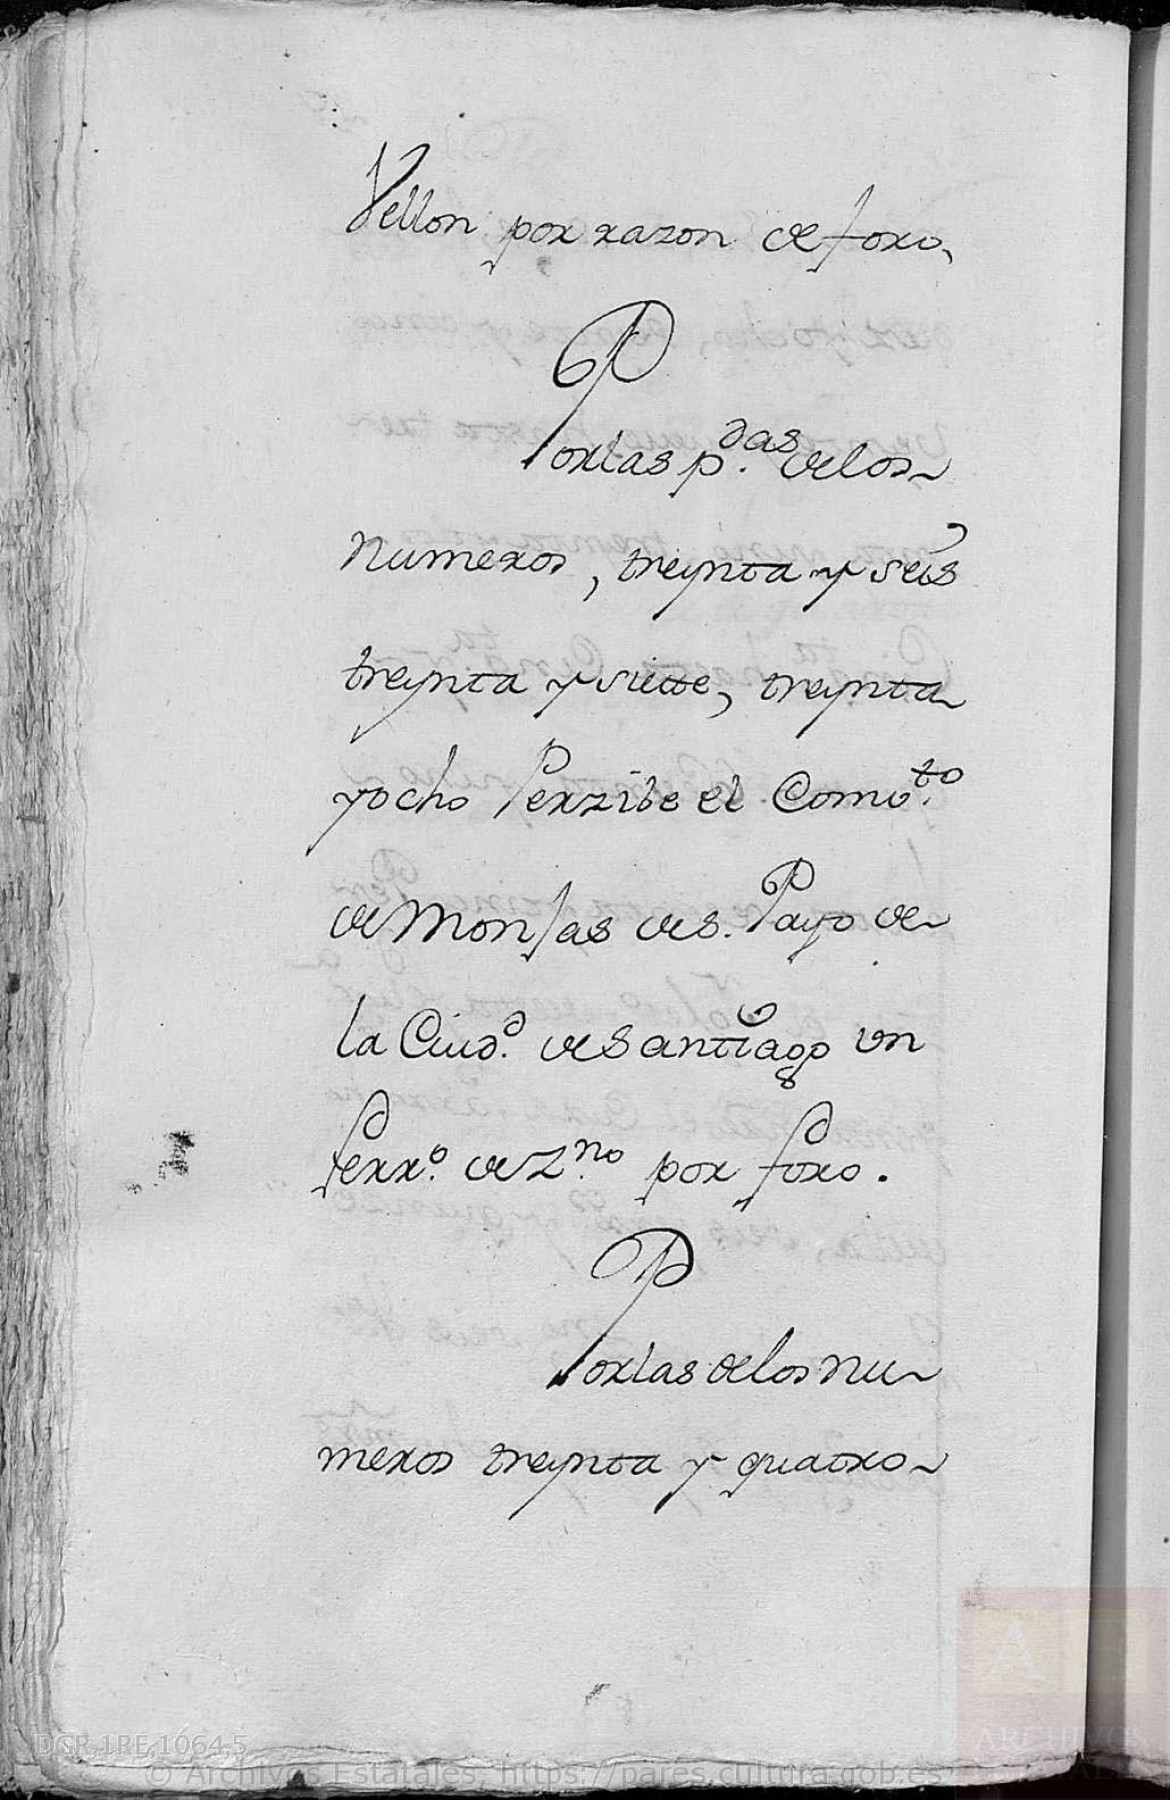 Vellon por razon de foro,
Por las p.das de los
numeros, treynta y seis
treynta y siette, treynta
y ocho Perzibe el Comb.to
de Monjas de S. Payo de
la Ciud.d de Santiago un
ferr.o de Z.no por foro.
Por las de los nu
meros treynta y quatro
DGR,1RE,1064,5
© Archivos Estatales, https://pares.cultura.gob.es
AE
ARCHIVOS